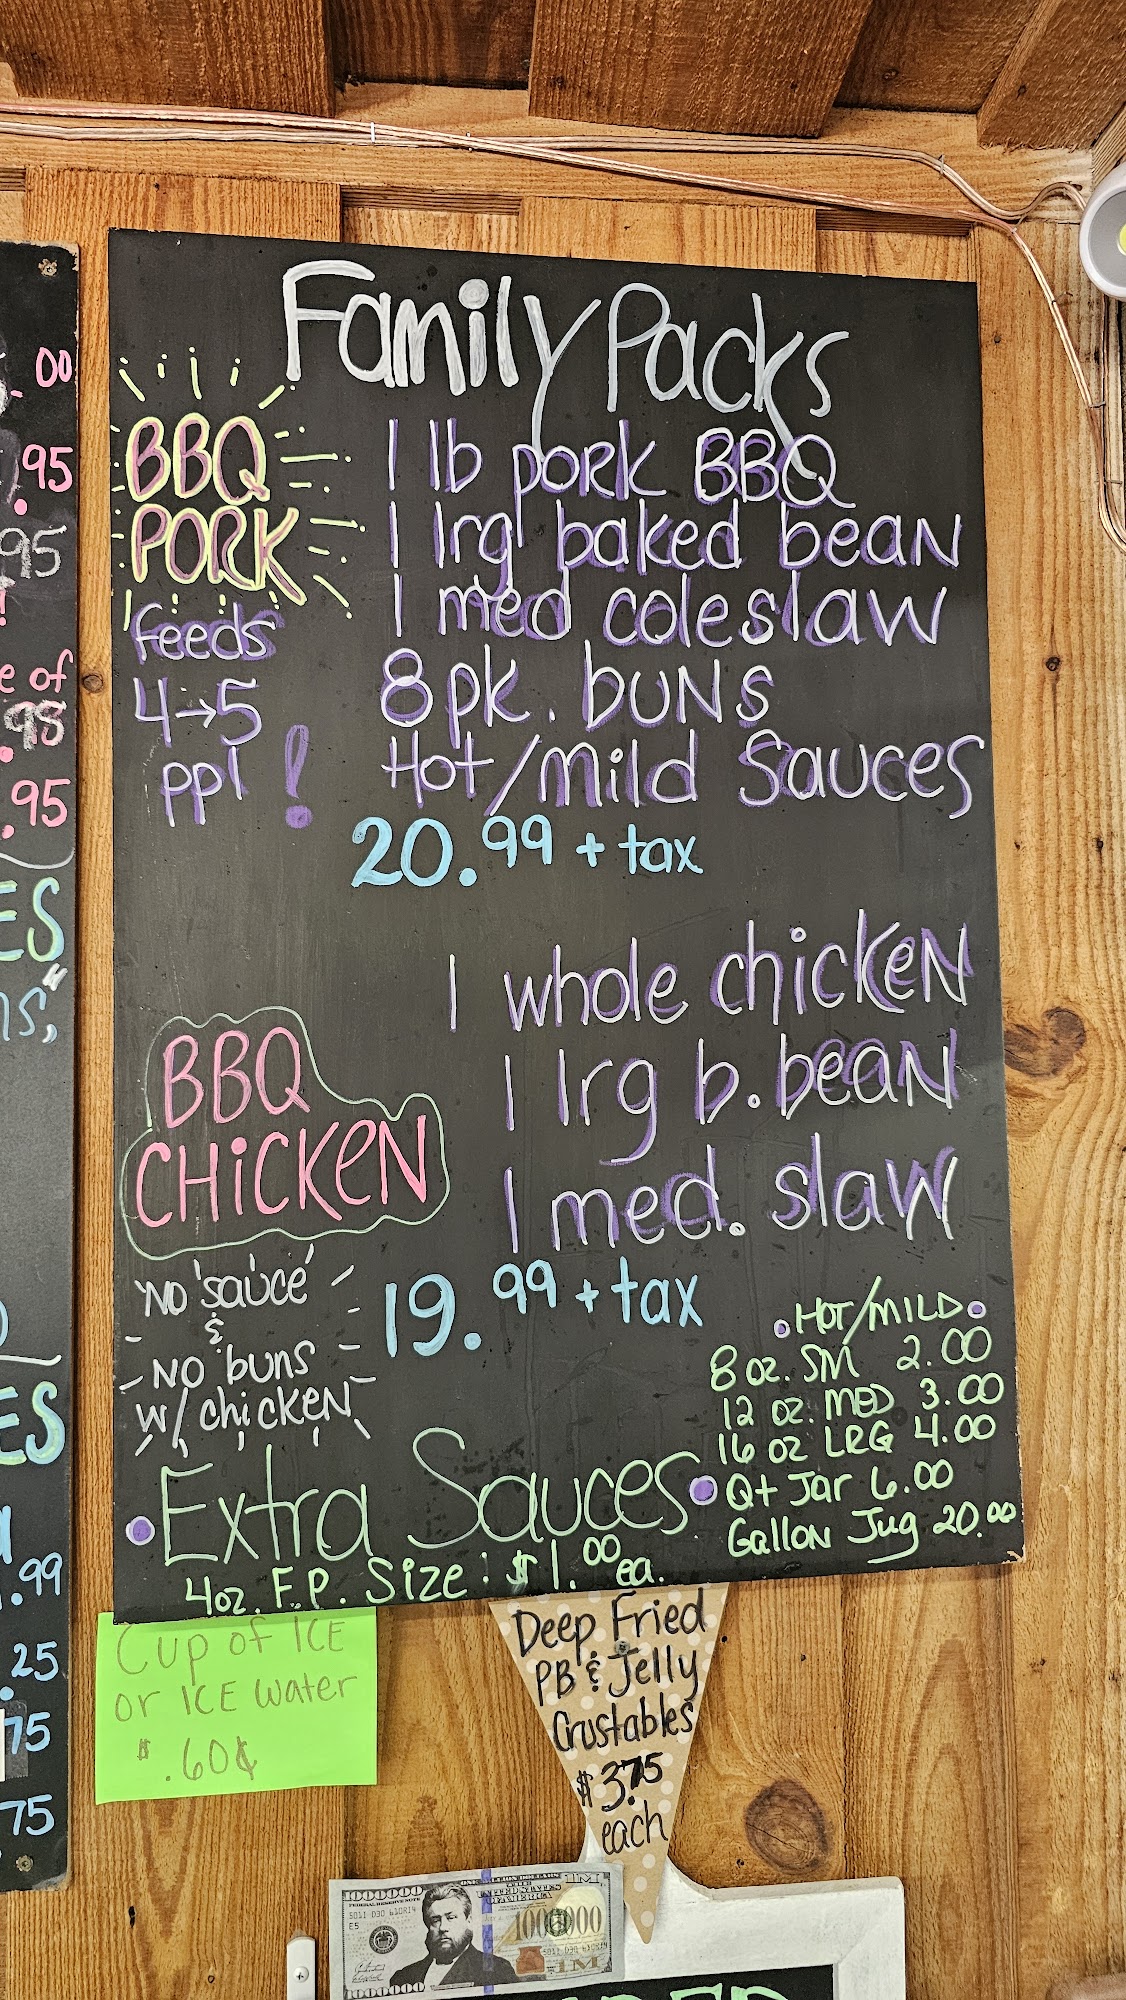 Family Packs
BBQ
PORK
feeds
4→5
ppl !
1 lb pork BBQ
1 lrg baked bean
1 med coleslaw
8 pk. buns
Hot/mild Sauces
20.99 + tax
BBQ
CHICKEN
1 whole chicken
1 lrg b.bean
1 med. slaw
19.99 + tax
"NO sauce"
&
NO buns
w/ chicken
Extra Sauces
4oz. F.P. Size: $1.00 ea.
HOT/MILD
8 oz. SM 2.00
12 oz. MED 3.00
16 oz LRG 4.00
Qt Jar 6.00
Gallon Jug 20.00
00
.95
95
e of
.98
.95
ES
ns,"
ES
.99
.25
75
75
Cup of ICE
or ICE water
$ .60¢
Deep Fried
PB & Jelly
Crustables
$3.75
each
1000000
FEDERAL RESERVE NOTE
E5
1000000
1M
1000000
1M